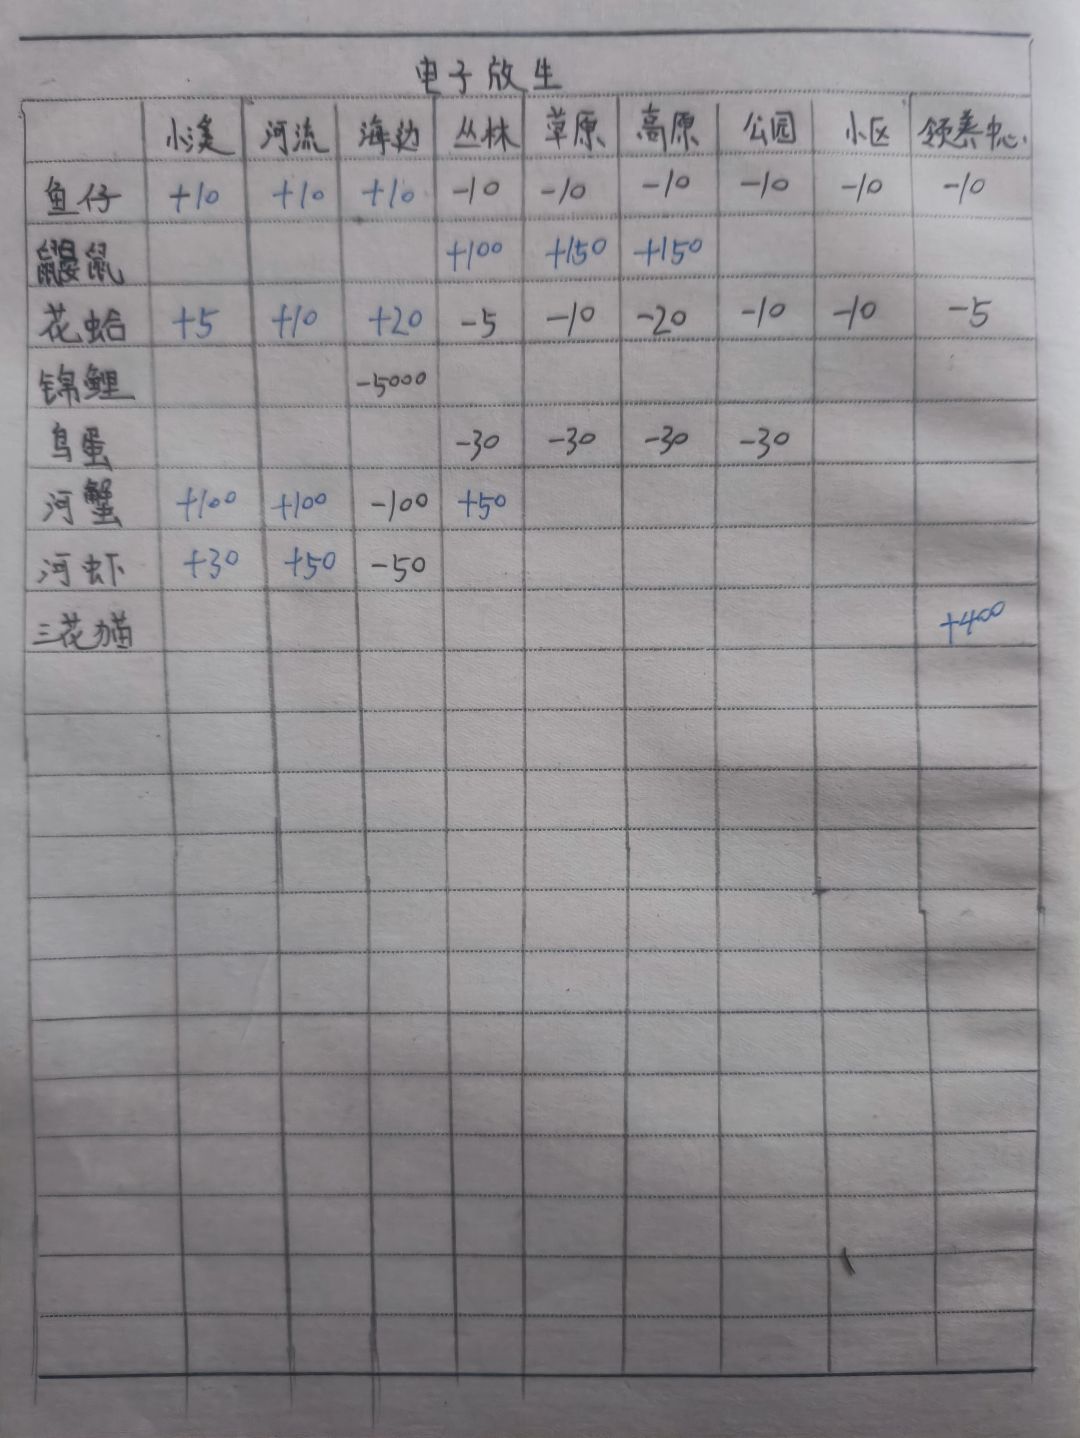 电子放生
小溪 河流 海边 丛林 草原 高原 公园 小区 领养中心
鱼仔 +10 +10 +10 -10 -10 -10 -10 -10 -10
鼹鼠 +100 +150 +150
花蛤 +5 +10 +20 -5 -10 -20 -10 -10 -5
锦鲤 -5000
鸟蛋 -30 -30 -30 -30
河蟹 +100 +100 -100 +50
河虾 +30 +50 -50
三花猫 +400